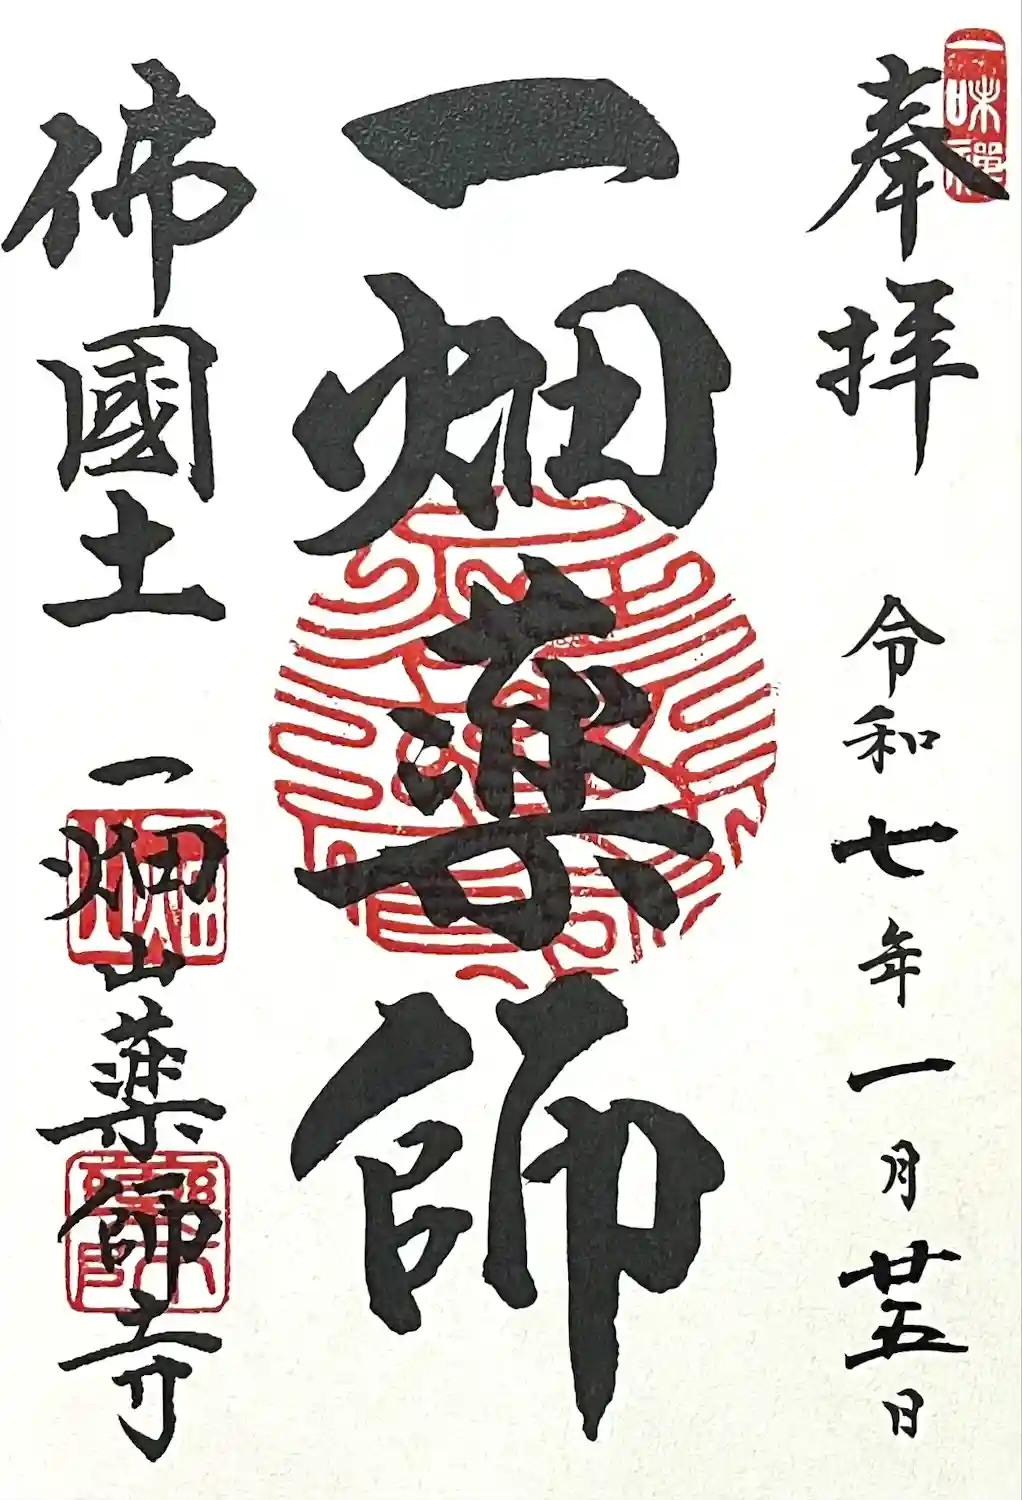 一味禪
奉拝
令和七年一月廿五日
一畑薬師
佛國土
一畑山薬師寺